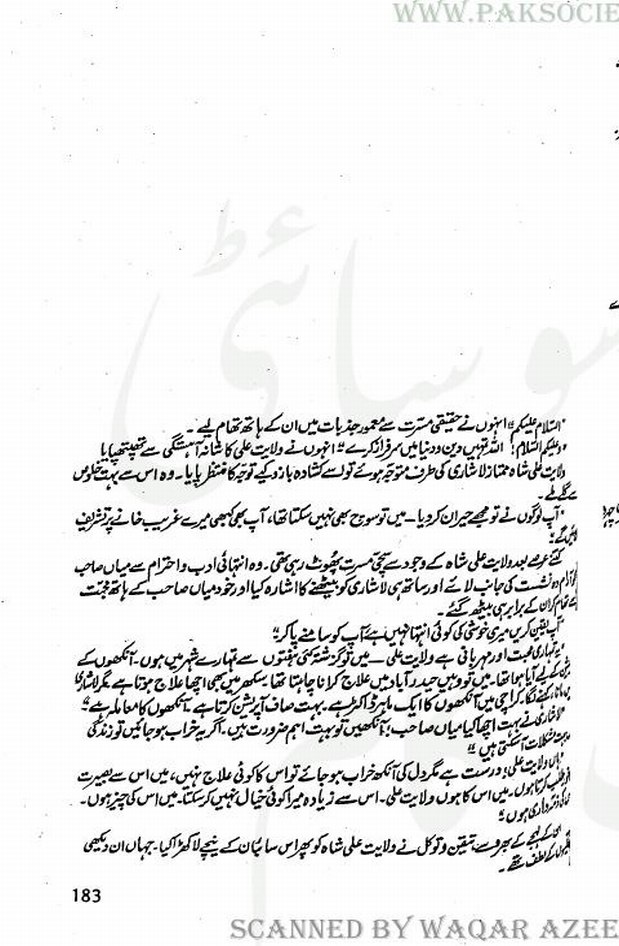 WWW.PAKSOCIE
"السلام علیکم" انہوں نے حقیقی مسرت سے معمور جذبات میں ان کے ہاتھ تھام لیے۔
"وعلیکم السلام! اللہ تمہیں دین و دنیا میں سرفراز کرے" انہوں نے ولایت علی کا شانہ آہستگی سے تھپتھپایا
ولایت علی شاہ ممتاز لاشاری کی طرف متوجہ ہوئے تو اسے کشادہ بازو کیے توجہ کا منتظر پایا۔ وہ اس سے بہت خلوص
سے گلے ملے۔
"آپ لوگوں نے تو مجھے حیران کر دیا۔ میں تو سوچ بھی نہیں سکتا تھا، آپ بھی کبھی میرے غریب خانے پر تشریف
لائیں گے"
کتنے عرصے بعد ولایت علی شاہ کے وجود سے سچی مسرت پھوٹ رہی تھی۔ وہ انتہائی ادب و احترام سے میاں صاحب
کو آرام دہ نشست کی جانب لائے اور ساتھ ہی لاشاری کو بیٹھنے کا اشارہ کیا اور خود میاں صاحب کے ہاتھ محبت
سے تھام کر ان کے برابر ہی بیٹھ گئے۔
"آپ یقین کریں میری خوشی کی کوئی انتہا نہیں ہے آپ کو سامنے پا کر"
"یہ تمہاری محبت اور مہربانی ہے ولایت علی — میں تو گزشتہ کئی ہفتوں سے تمہارے شہر میں ہوں۔ آنکھوں کے
لیے آیا ہوا تھا۔ میں تو وہیں حیدر آباد میں علاج کرانا چاہتا تھا سکھر میں بھی اچھا علاج ہوتا ہے مگر لاشاری
کہنے لگا۔ کراچی میں آنکھوں کا ایک ماہر ڈاکٹر ہے۔ بہت صاف آپریشن کرتا ہے۔ آنکھوں کا معاملہ ہے"
"لاشاری نے بہت اچھا کیا میاں صاحب! آنکھیں تو بہت اہم ضرورت ہیں۔ اگر یہ خراب ہو جائیں تو زندگی
میں بہت مشکلات آسکتی ہیں"
"ہاں ولایت علی! درست ہے مگر دل کی آنکھ خراب ہو جائے تو اس کا کوئی علاج نہیں، میں اس سے بصیرت
طلب کرتا ہوں۔ میں اس کا ہوں ولایت علی۔ اس سے زیادہ میرا کوئی خیال نہیں کر سکتا۔ میں اس کی چیز ہوں۔
کی ذمہ داری ہوں"
کے لہجے کے بھروسے تیقن و توکل نے ولایت علی شاہ کو پھر اس سائبان کے نیچے لا کھڑا کیا۔ جہاں ان دیکھی
کے لطف تھے۔
183
SCANNED BY WAQAR AZEE